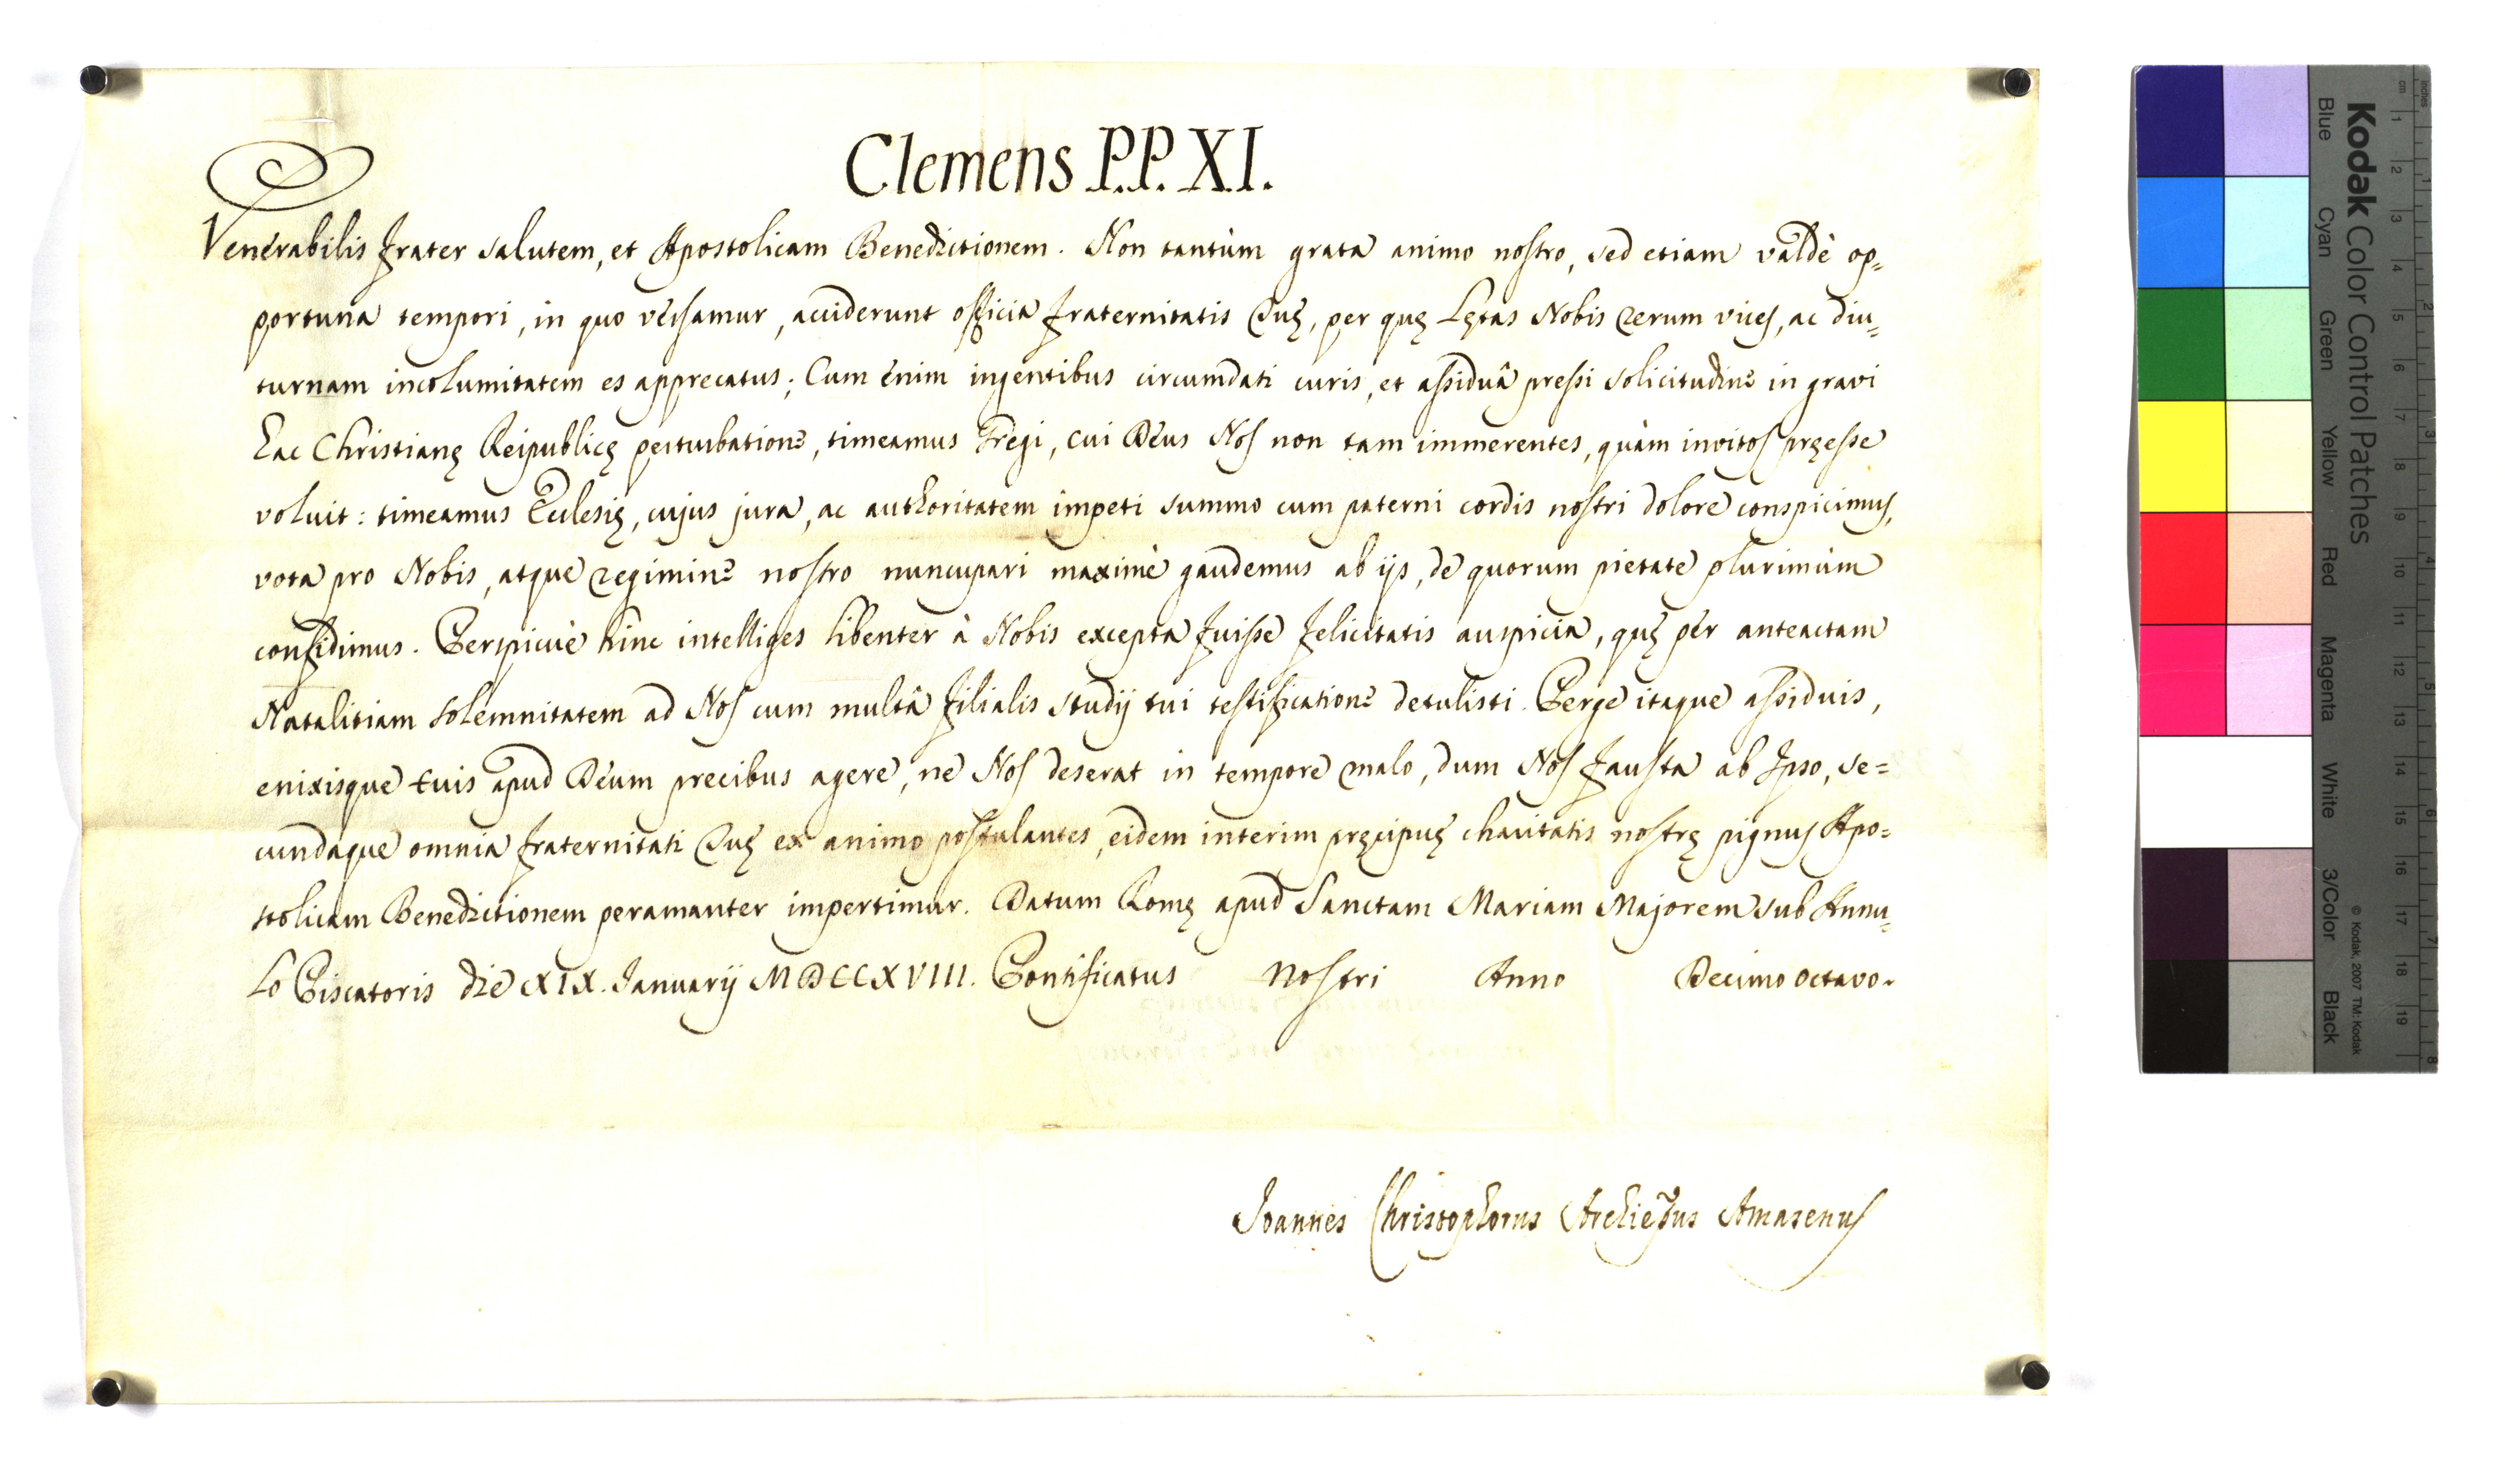 Clemens P.P. XI.
Venerabilis frater salutem, et Apostolicam Benedictionem. Non tantùm grata animo nostro, sed etiam valdè op=
portuna tempori, in quo versamur, acciderunt officia fraternitatis Tuę, per quę Lętas Nobis rerum vices, ac diu=
turnam incolumitatem es apprecatus; Cum enim ingentibus circumdati curis, et assiduâ pressi solicitudine in gravi
hac Christianę Reipublicę perturbatione, timeamus Gregi, cui Deus Nos non tam immerentes, quàm invitos pręesse
voluit: timeamus Ecclesię, cujus jura, ac authoritatem impeti summo cum paterni cordis nostri dolore conspicimus,
vota pro Nobis, atque regimine nostro nuncupari maximè gaudemus ab ijs, de quorum pietate plurimùm
confidimus. Perspicuè hinc intelliges libenter à Nobis excepta fuisse felicitatis auspicia, quę per anteactam
Natalitiam solemnitatem ad Nos cum multâ filialis studij tui testificatione detulisti. Perge itaque assiduis,
enixisque tuis apud Deum precibus agere, ne Nos deserat in tempore malo, dum Nos fausta ab Ipso, se=
cundaque omnia fraternitati Tuę ex animo postulantes, eidem interim pręcipuę charitatis nostrę pignus Apo=
stolicam Benedictionem peramanter impertimur. Datum Romę apud Sanctam Mariam Majorem sub Annu=
lo Piscatoris die XIX. Januarij MDCCXVIII. Pontificatus Nostri Anno Decimo octavo.
Joannes Christophorus Archiepus Amasenus
Kodak Color Control Patches
Blue Cyan Green Yellow Red Magenta White 3/Color Black
© Kodak, 2007 TM: Kodak
inches 1 2 3 4 5 6 7 8
cm 1 2 3 4 5 6 7 8 9 10 11 12 13 14 15 16 17 18 19